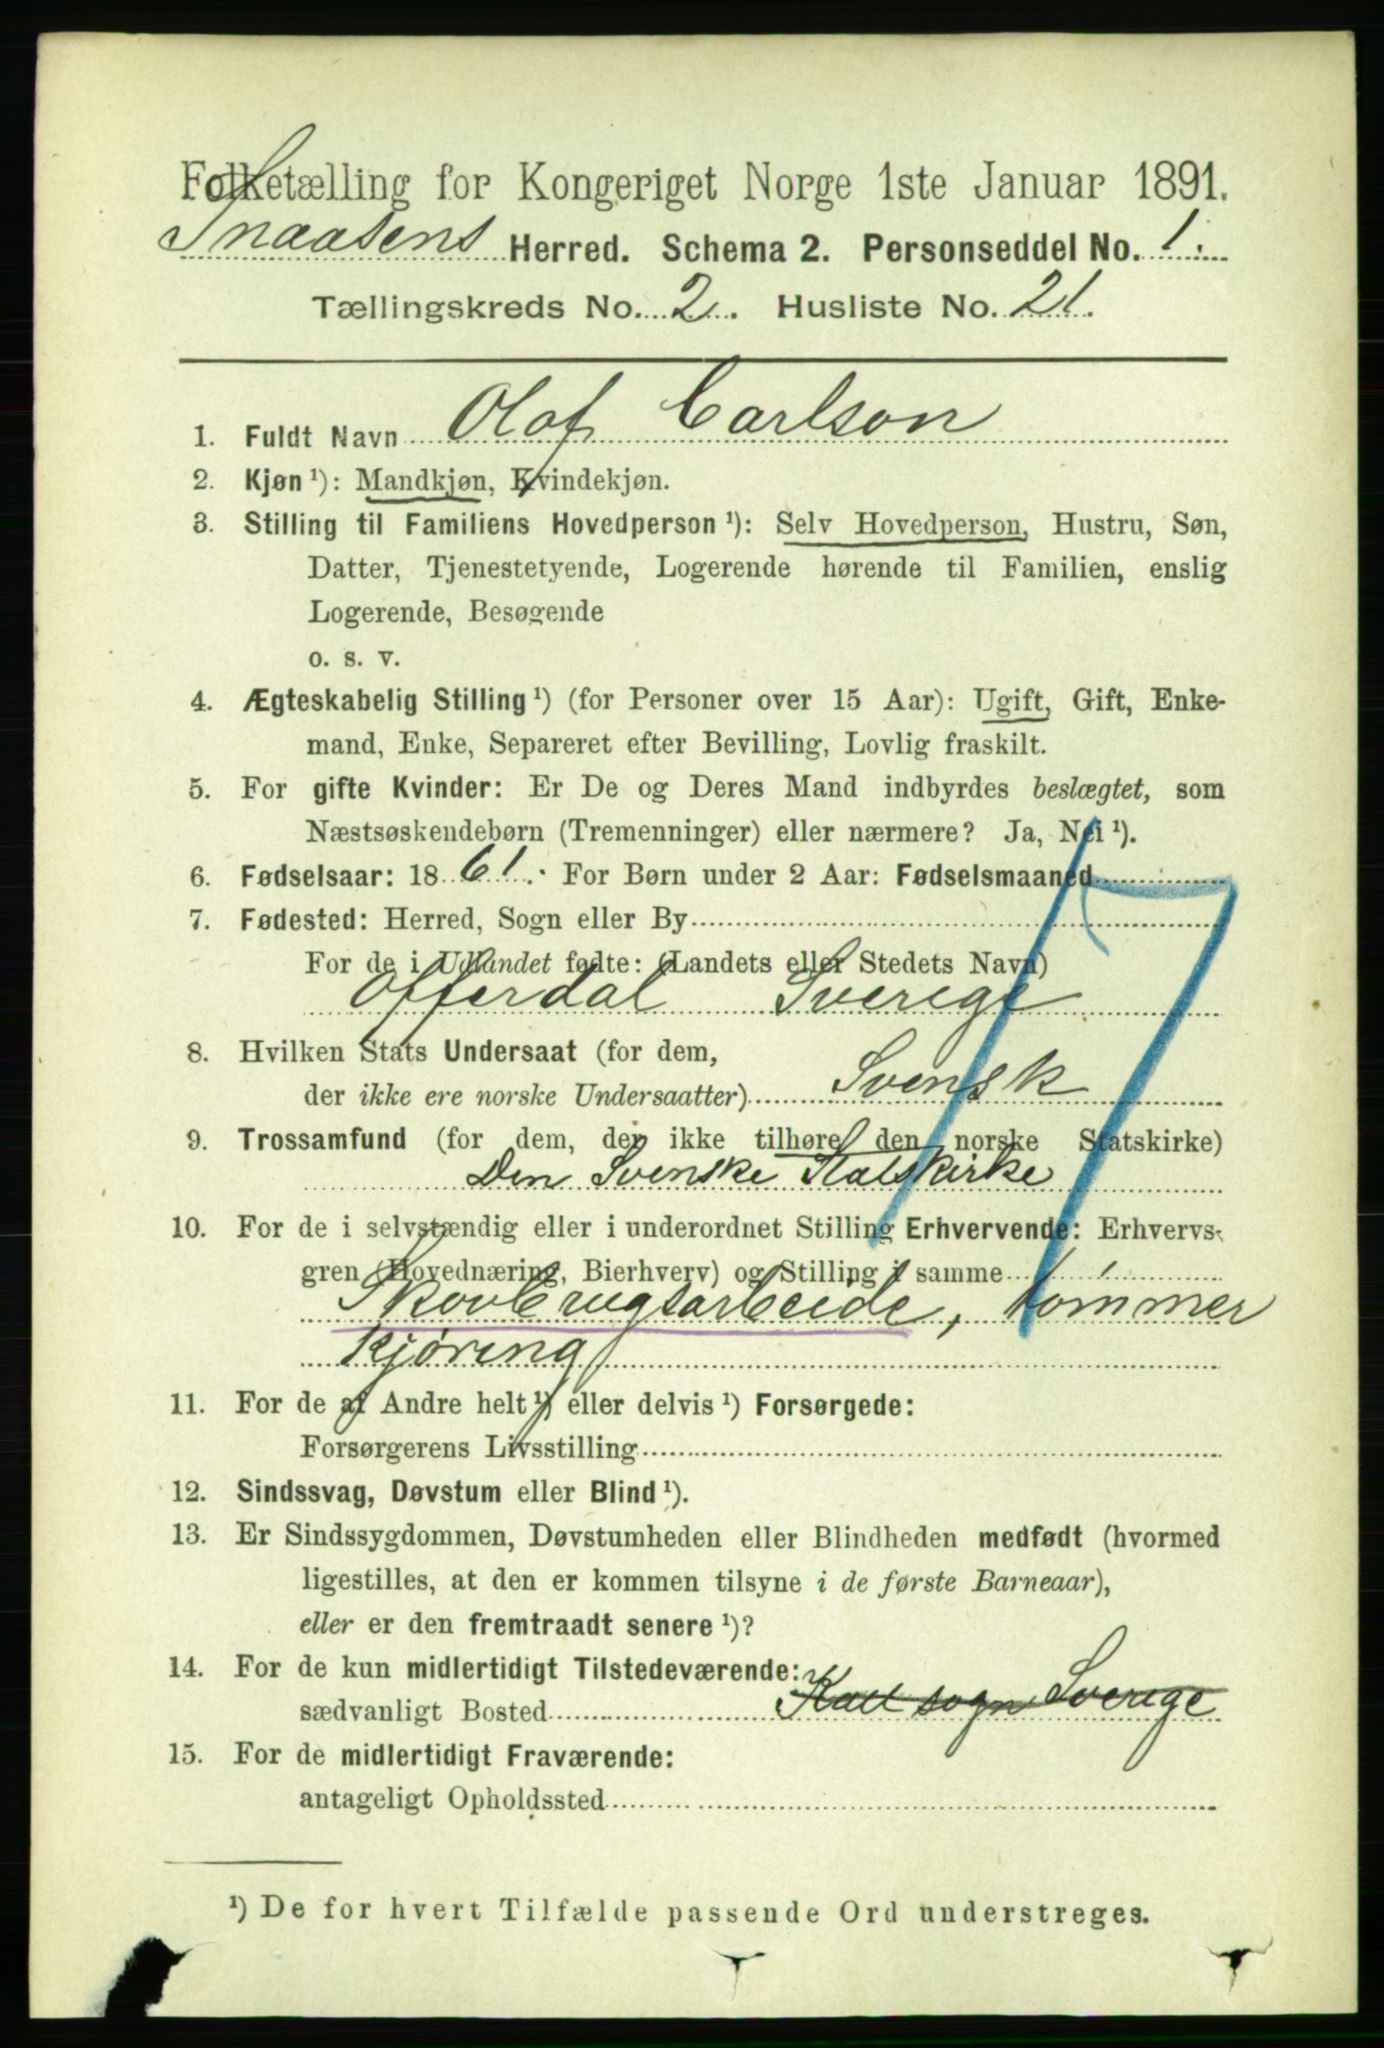 Folketælling for Kongeriget Norge 1ste Januar 1891.
Snaasens Herred. Schema 2. Personseddel No. 1.
Tællingskreds No. 2. Husliste No. 21.
1. Fuldt Navn Olof Carlson
2. Kjøn ¹): Mandkjøn, Kvindekjøn.
3. Stilling til Familiens Hovedperson ¹): Selv Hovedperson, Hustru, Søn,
Datter, Tjenestetyende, Logerende hørende til Familien, enslig
Logerende, Besøgende
o. s. v.
4. Ægteskabelig Stilling ¹) (for Personer over 15 Aar): Ugift, Gift, Enke-
mand, Enke, Separeret efter Bevilling, Lovlig fraskilt.
5. For gifte Kvinder: Er De og Deres Mand indbyrdes beslægtet, som
Næstsøskendebørn (Tremenninger) eller nærmere? Ja, Nei ¹).
6. Fødselsaar: 1861. For Børn under 2 Aar: Fødselsmaaned
7. Fødested: Herred, Sogn eller By
For de i Udlandet fødte: (Landets eller Stedets Navn)
Offerdal Sverige
8. Hvilken Stats Undersaat (for dem,
der ikke ere norske Undersaatter) Svensk
9. Trossamfund (for dem, der ikke tilhøre den norske Statskirke)
Den Svenske Statskirke
10. For de i selvstændig eller i underordnet Stilling Erhvervende: Erhvervs-
gren (Hovednæring, Bierhverv) og Stilling i samme
Skovbrugsarbeide, tømmer
kjøring
11. For de af Andre helt ¹) eller delvis ¹) Forsørgede:
Forsørgerens Livsstilling
12. Sindssvag, Døvstum eller Blind ¹).
13. Er Sindssygdommen, Døvstumheden eller Blindheden medfødt (hvormed
ligestilles, at den er kommen tilsyne i de første Barneaar),
eller er den fremtraadt senere ¹)?
14. For de kun midlertidigt Tilstedeværende:
sædvanligt Bosted Kall sogn Sverige
15. For de midlertidigt Fraværende:
antageligt Opholdssted
¹) De for hvert Tilfælde passende Ord understreges.